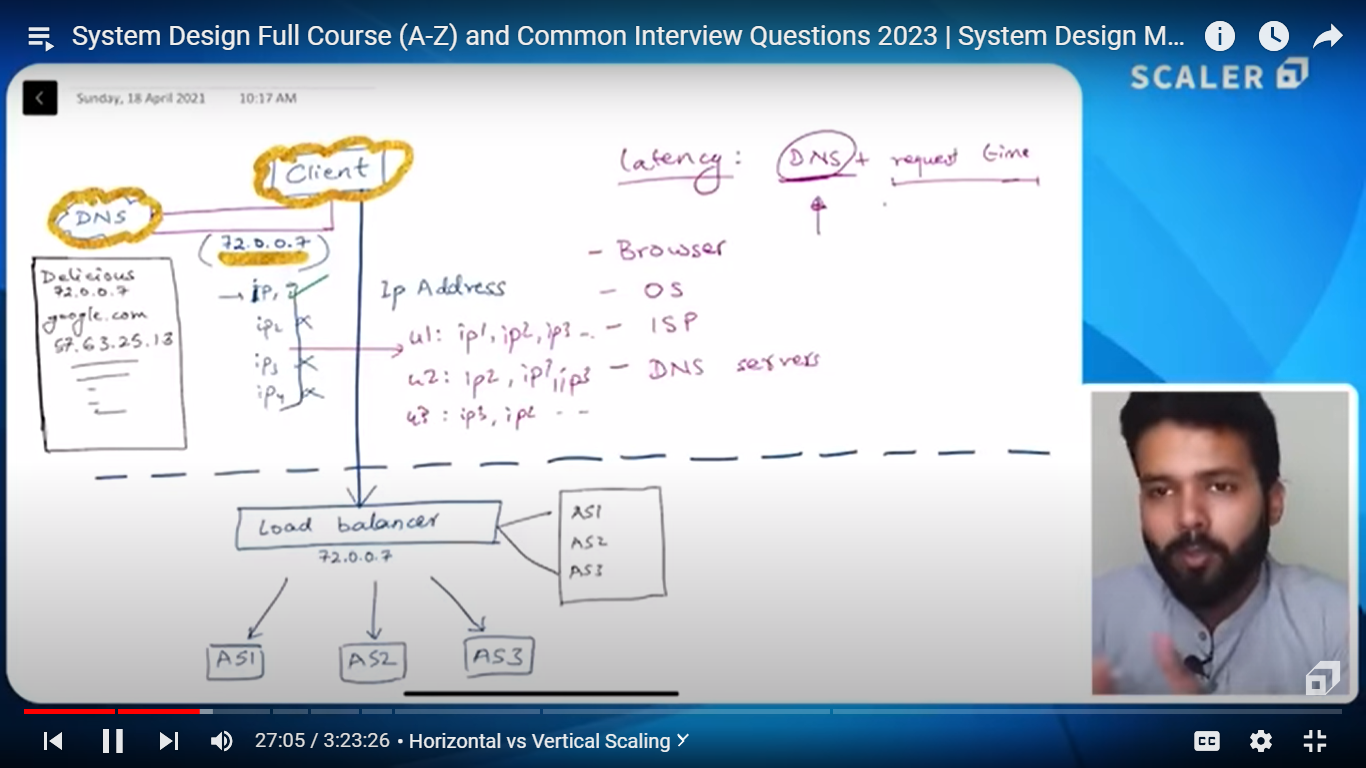 System Design Full Course (A-Z) and Common Interview Questions 2023 | System Design M...
SCALER
Sunday, 18 April 2021 10:17 AM
Client
Latency: DNS + request time
DNS
(72.0.0.7)
Delicious
72.0.0.7
google.com
57.63.25.13
ip1
ip2
ip3
ip4
Ip Address
u1: ip1, ip2, ip3 ..
u2: ip2, ip1, ip3
u3: ip3, ip2 - -
- Browser
- OS
- ISP
- DNS servers
Load balancer
72.0.0.7
AS1
AS2
AS3
AS1 AS2 AS3
27:05 / 3:23:26 • Horizontal vs Vertical Scaling
CC